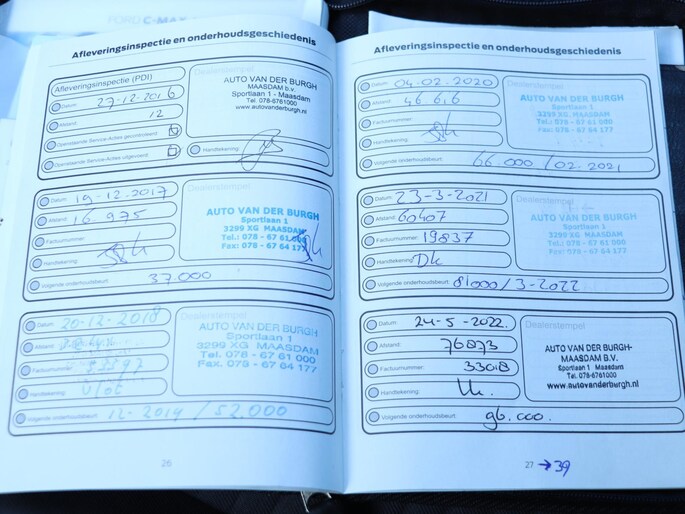 FORD C-MAX
Afleveringsinspectie en onderhoudsgeschiedenis
Afleveringsinspectie (PDI)
Datum: 27-12-2016
Afstand: 12
Openstaande Service-Acties gecontroleerd:
Openstaande Service-Acties uitgevoerd:
AUTO VAN DER BURGH
MAASDAM b.v.
Sportlaan 1 - Maasdam
Tel. 078-6761000
www.autovanderburgh.nl
Handtekening:
Datum: 19-12-2017
Afstand: 16.975
Factuurnummer:
Handtekening:
Volgende onderhoudsbeurt:
37.000
Dealerstempel
AUTO VAN DER BURGH
Sportlaan 1
3299 XG MAASDAM
Tel.: 078 - 67 61 000
Fax: 078 - 67 64 177
Datum: 20-12-2018
Afstand:
Factuurnummer:
Handtekening:
Volgende onderhoudsbeurt: 12-2019 / 52.000
Dealerstempel
AUTO VAN DER BURGH
Sportlaan 1
3299 XG MAASDAM
Tel. 078 - 67 61 000
Fax. 078 - 67 64 177
26
Afleveringsinspectie en onderhoudsgeschiedenis
Datum: 04.02.2020
Afstand: 46.616
Factuurnummer:
Handtekening:
Volgende onderhoudsbeurt: 66.000 / 02-2021
Dealerstempel
AUTO VAN DER BURGH
Sportlaan 1
3299 XG MAASDAM
Tel.: 078 - 67 61 000
Fax: 078 - 67 64 177
Datum: 23-3-2021
Afstand: 60407
Factuurnummer: 19837
Handtekening: Dk
Volgende onderhoudsbeurt: 81000 / 3-2022
Dealerstempel
AUTO VAN DER BURGH
Sportlaan 1
3299 XG MAASDAM
Tel.: 078 - 67 61 000
Fax: 078 - 67 64 177
Datum: 24-5-2022.
Afstand: 76873
Factuurnummer: 33018
Handtekening:
Volgende onderhoudsbeurt: 96.000.
Dealerstempel
AUTO VAN DER BURGH-
MAASDAM B.V.
Sportlaan 1 Maasdam
Tel. 078-6761000
www.autovanderburgh.nl
27 → 39